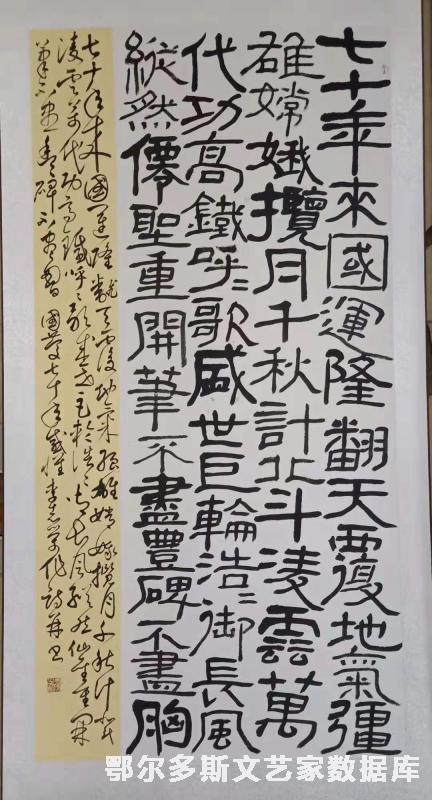 七十年來國運隆翻天覆地氣彊
雄嫦娥攬月千秋計北斗凌雲萬
代功高鐵呼〻歌盛世巨輪浩〻御長風
縱然僊聖重開筆不盡豐碑不盡胸
七十年來國運隆翻天覆地氣強雄嫦娥攬月千秋計北斗
凌雲萬代功高鐵呼〻歌盛世巨輪浩〻御長風縱然仙聖重開
筆不盡豐碑不盡胸 國慶七十年感懷 李志學作詩并書
鄂尔多斯文艺家数据库